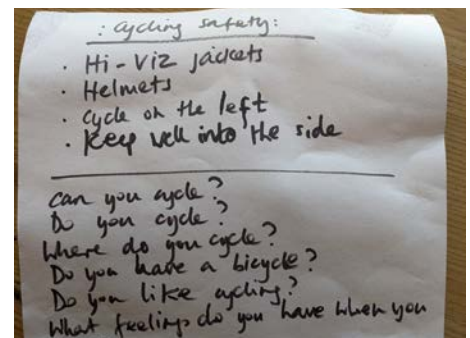 : Cycling safety:
· Hi-Viz jackets
· Helmets
· Cycle on the left
· Keep well into the side
Can you cycle?
Do you cycle?
Where do you cycle?
Do you have a bicycle?
Do you like cycling?
What feelings do you have when you